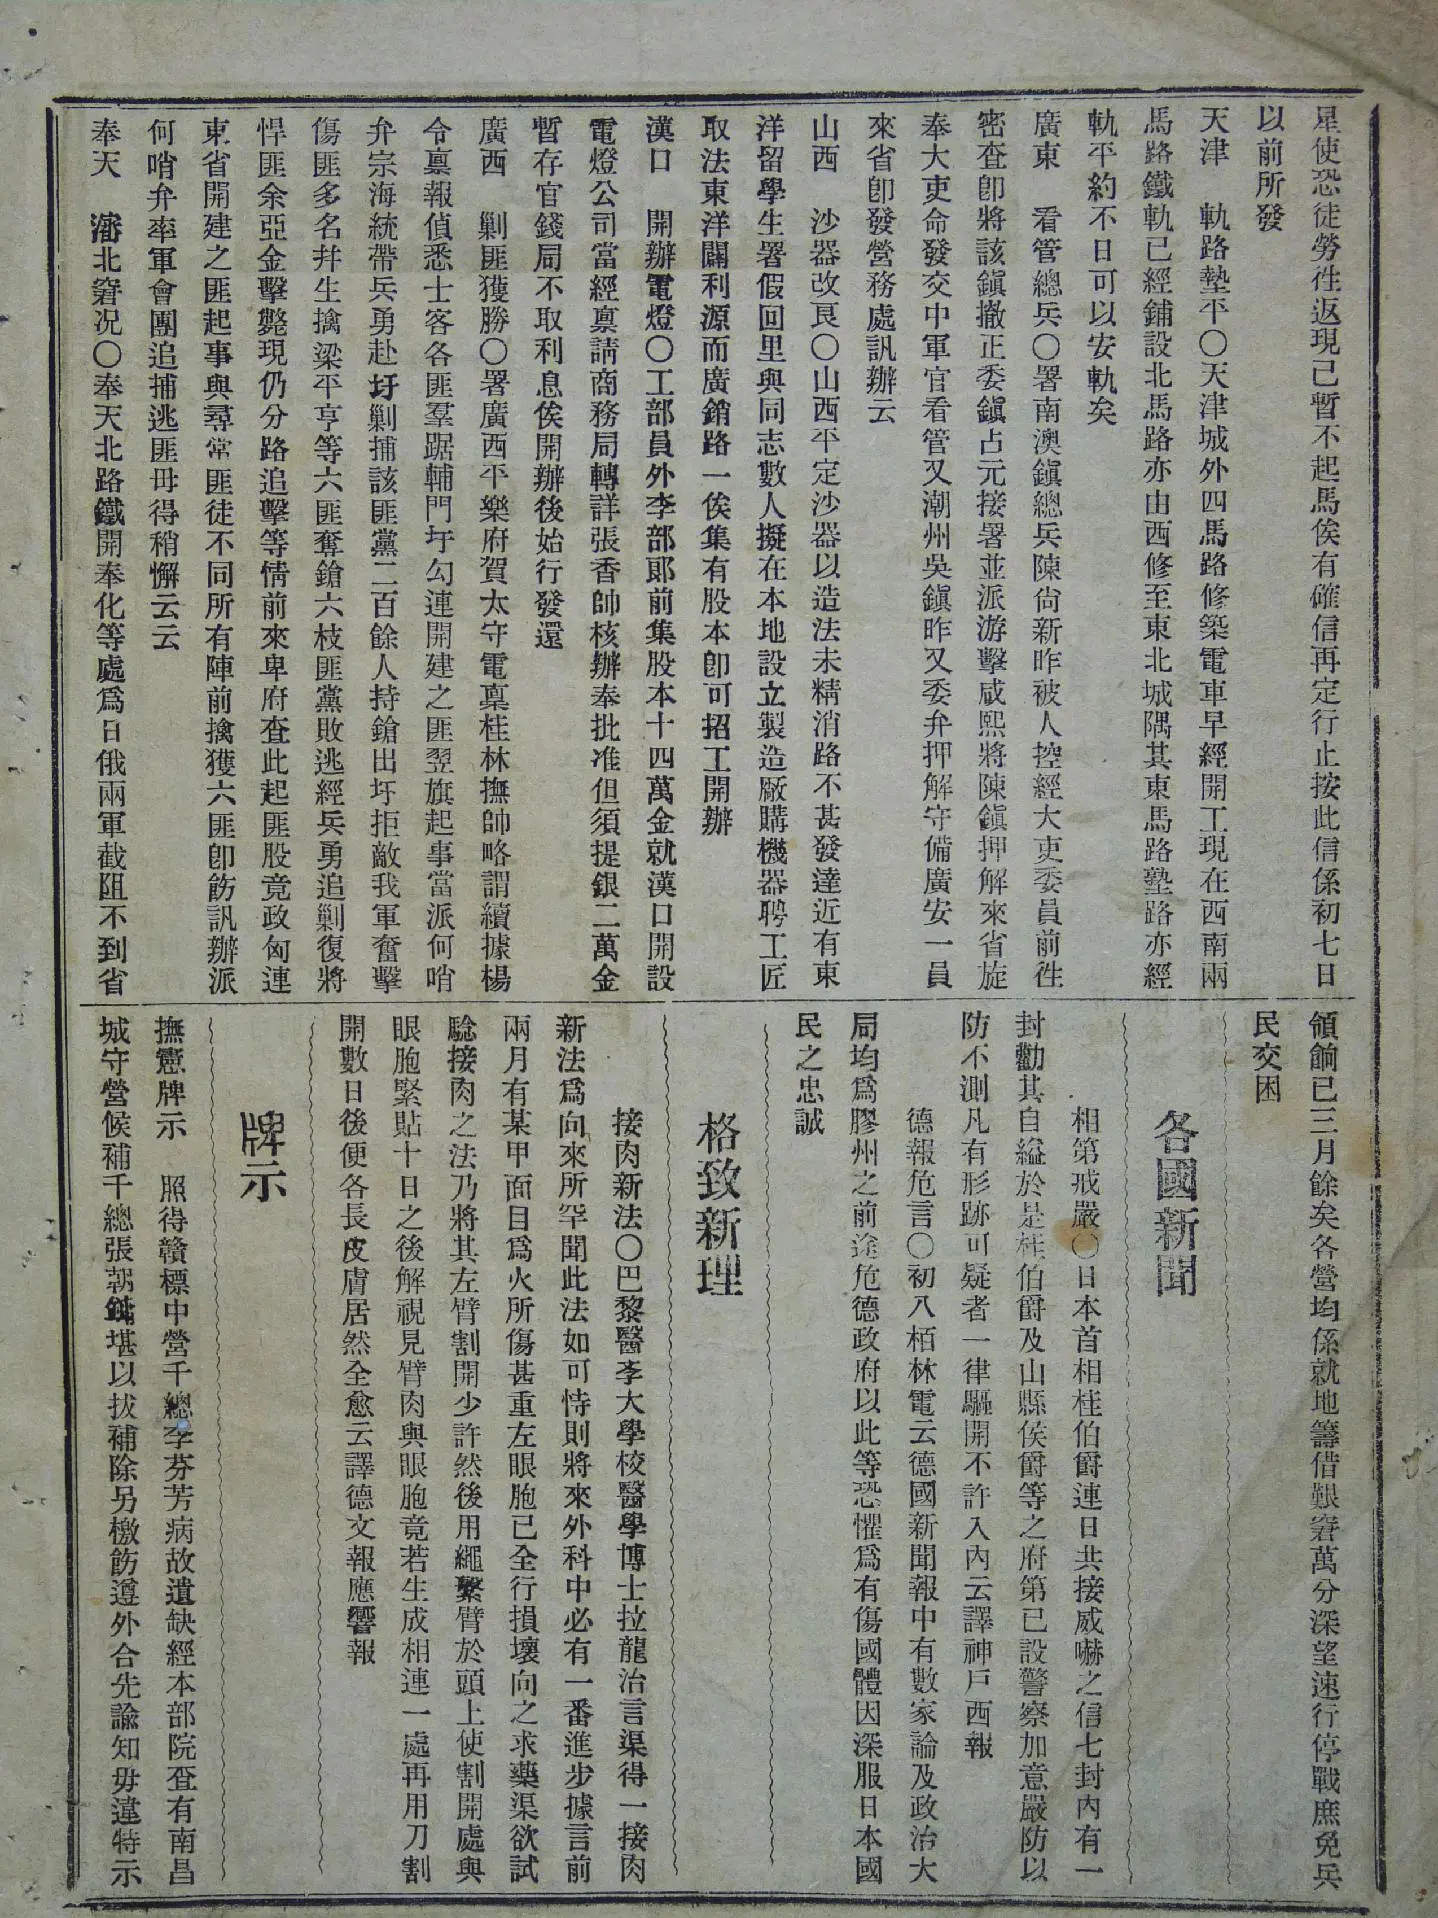 星使恐徒勞往返現已暫不起馬俟有確信再定行止按此信係初七日
以前所發
天津　軌路墊平〇天津城外四馬路修築電車早經開工現在西南兩
馬路鐵軌已經鋪設北馬路亦由西修至東北城隅其東馬路墊路亦經
軌平約不日可以安軌矣
廣東　看管總兵〇署南澳鎮總兵陳尙新昨被人控經大吏委員前往
密查卽將該鎮撤正委鎮占元接署並派游擊咸熙將陳鎮押解來省旋
奉大吏命發交中軍官看管又潮州吳鎮昨又委弁押解守備廣安一員
來省卽發營務處訊辦云
山西　沙器改良〇山西平定沙器以造法未精消路不甚發達近有東
洋留學生署假回里與同志數人擬在本地設立製造廠購機器聘工匠
取法東洋闢利源而廣銷路一俟集有股本卽可招工開辦
漢口　開辦電燈〇工部員外李部郞前集股本十四萬金就漢口開設
電燈公司當經稟請商務局轉詳張香帥核辦奉批准但須提銀二萬金
暫存官錢局不取利息俟開辦後始行發還
廣西　剿匪獲勝〇署廣西平樂府賀太守電稟桂林撫帥略謂續據楊
令稟報偵悉士客各匪羣踞輔門圩勾連開建之匪翌旗起事當派何哨
弁宗海統帶兵勇赴圩剿捕該匪黨二百餘人持鎗出圩拒敵我軍奮擊
傷匪多名幷生擒梁平亨等六匪奪鎗六枝匪黨敗逃經兵勇追剿復將
悍匪余亞金擊斃現仍分路追擊等情前來卑府查此起匪股竟政匈連
東省開建之匪起事與尋常匪徒不同所有陣前擒獲六匪卽飭訊辦派
何哨弁率軍會團追捕逃匪毋得稍懈云云
奉天　瀋北窘况〇奉天北路鐵開奉化等處爲日俄兩軍截阻不到省
領餉已三月餘矣各營均係就地籌借艱窘萬分深望速行停戰庶免兵
民交困
各國新聞
相第戒嚴〇日本首相桂伯爵連日共接威嚇之信七封內有一
封勸其自縊於是桂伯爵及山縣侯爵等之府第已設警察加意嚴防以
防不測凡有形跡可疑者一律驅開不許入內云譯神戶西報
德報危言〇初八栢林電云德國新聞報中有數家論及政治大
局均爲膠州之前途危德政府以此等恐懼爲有傷國體因深服日本國
民之忠誠
格致新理
接肉新法〇巴黎醫李大學校醫學博士拉龍治言渠得一接肉
新法爲向來所罕聞此法如可恃則將來外科中必有一番進步據言前
兩月有某甲面目爲火所傷甚重左眼胞已全行損壞向之求藥渠欲試
騐接肉之法乃將其左臂割開少許然後用繩繫臂於頭上使割開處與
眼胞緊貼十日之後解視見臂肉與眼胞竟若生成相連一處再用刀割
開數日後便各長皮膚居然全愈云譯德文報應響報
牌示
撫憲牌示　照得贛標中營千總李芬芳病故遺缺經本部院查有南昌
城守營候補千總張朝鉞堪以拔補除另檄飭遵外合先諭知毋違特示